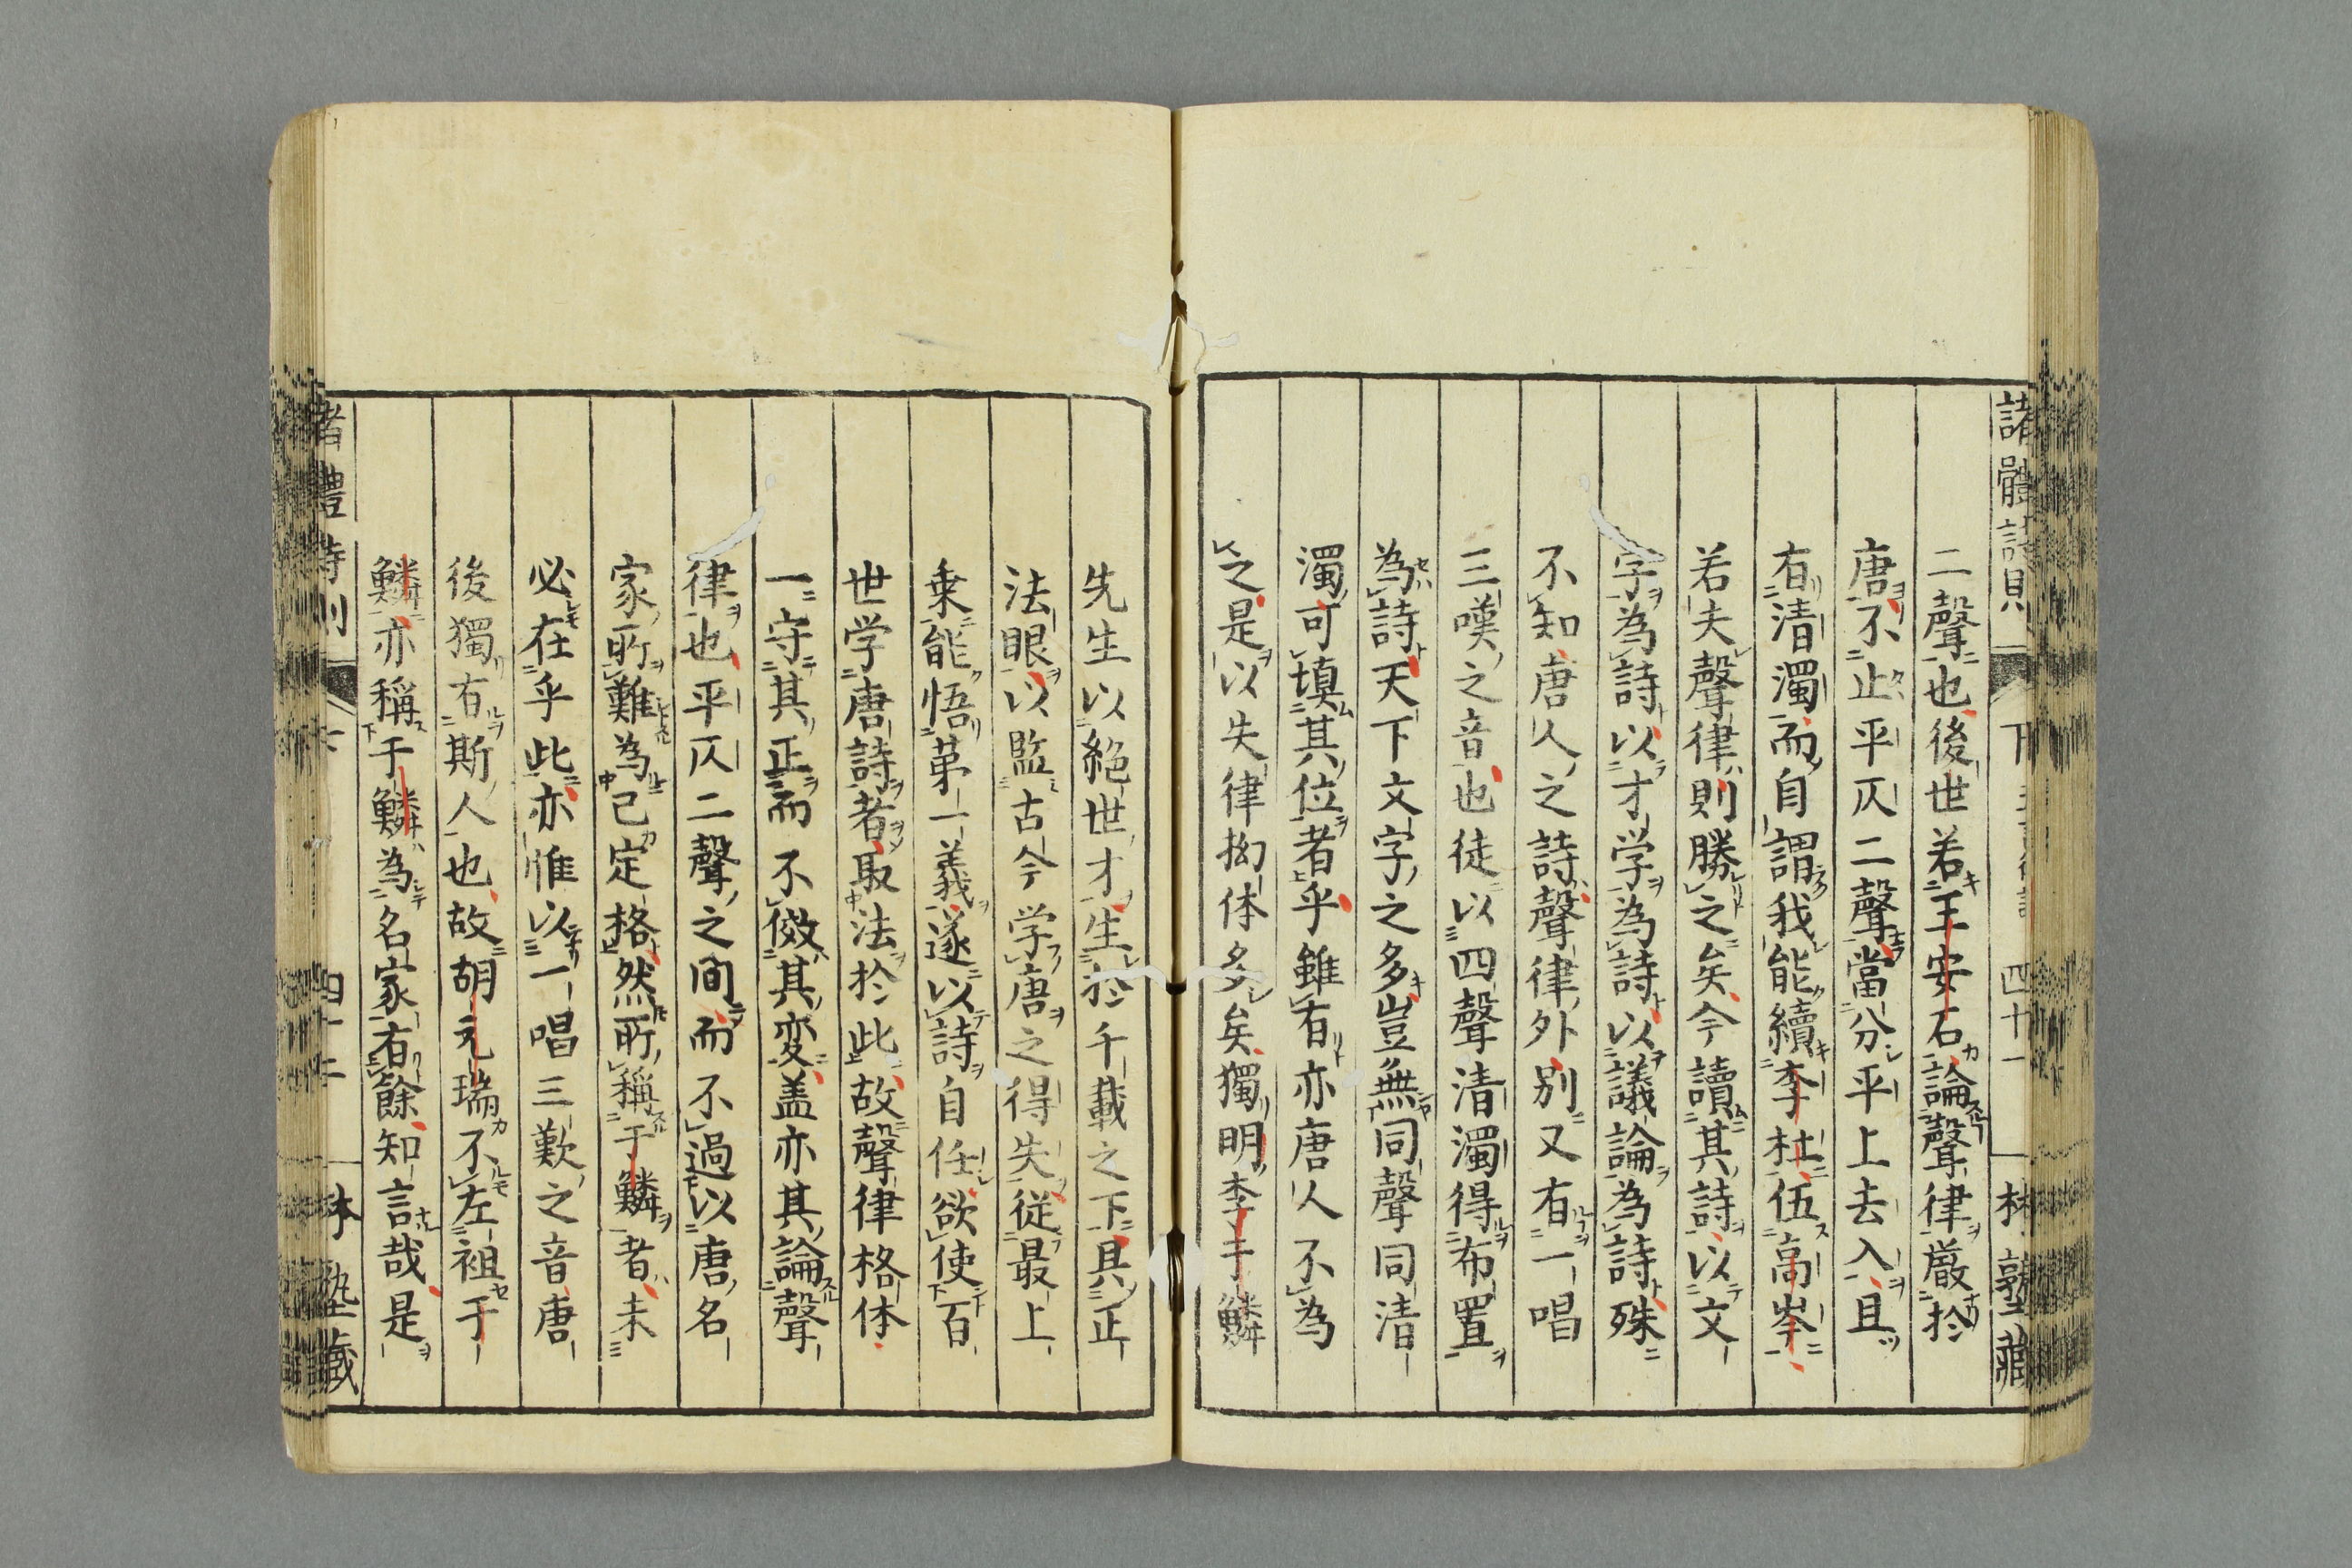 二聲也後世若王安石論聲律嚴於
唐不止平仄二聲當分平上去入且
有清濁而自謂我能續李杜伍高岑
若夫聲律則勝之矣今讀其詩以文
字為詩以才学為詩以議論為詩殊
不知唐人之詩聲律外別又有一唱
三嘆之音也徒以四聲清濁得布置
為詩天下文字之多豈無同聲同清
濁可填其位者乎雖有亦唐人不為
之是以失律拗体多矣獨明李于鱗
先生以絶世才生於千載之下具正
法眼以監古今学唐之得失從最上
乗能悟第一義遂以詩自任欲使百
世学唐詩者取法於此故聲律格体
一守其正而不傚其変盖亦其論聲
律也平仄二聲之間而不過以唐名
家所難為己定格然所稱于鱗者未
必在乎此亦惟以一唱三歎之音唐
後獨有斯人也故胡元瑞不左袒于
鱗亦稱于鱗為名家有餘知言哉是